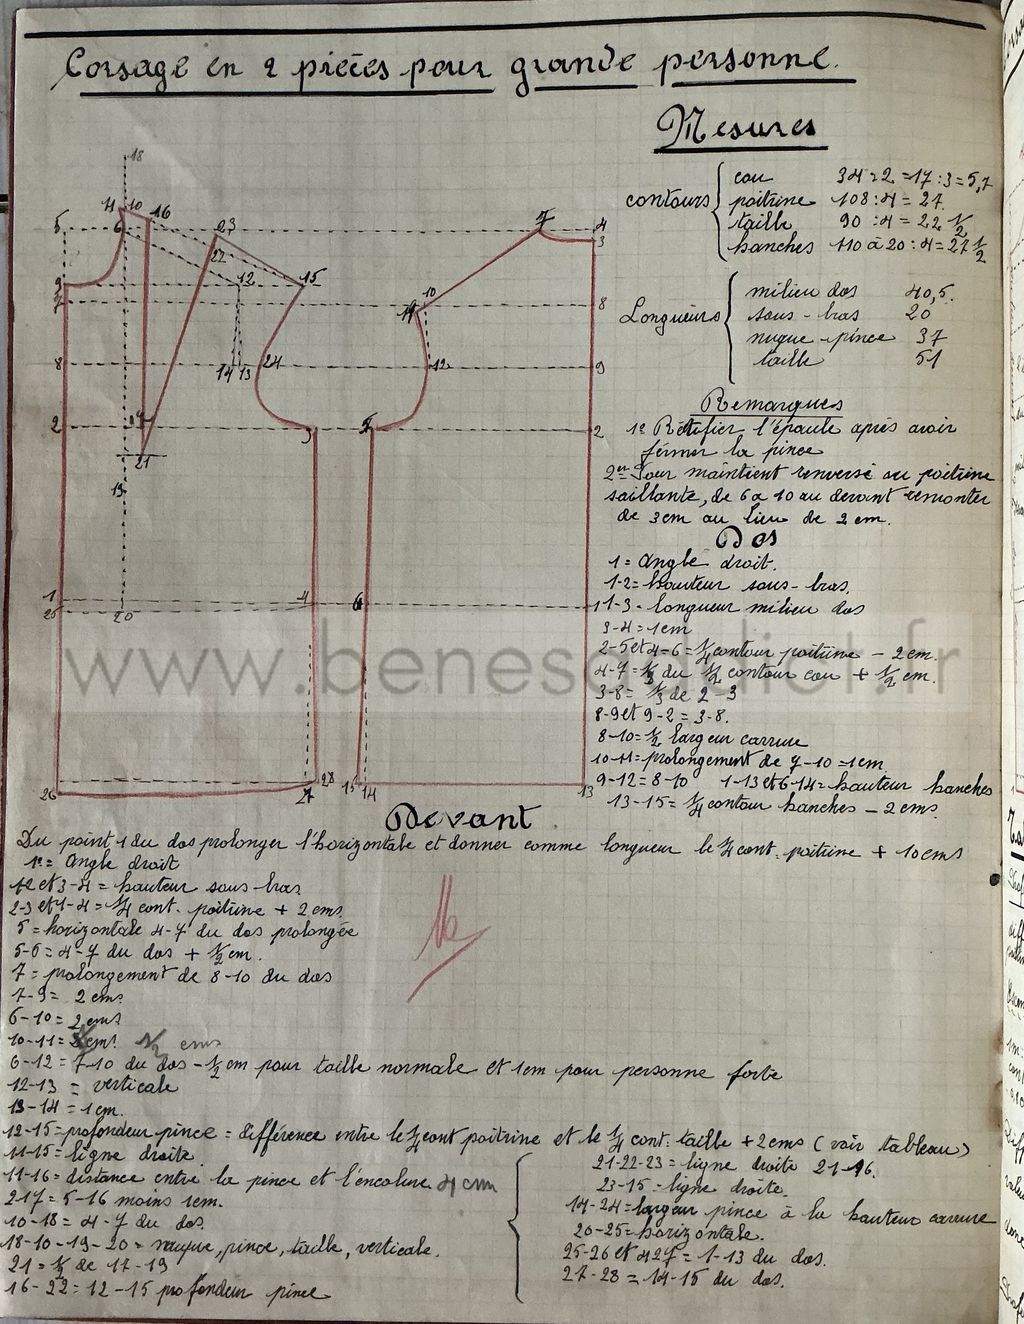 Corsage en 2 pièces pour grande personne.
Mesures
contours
cou 34:2 = 17:3 = 5,7
poitrine 108:4 = 27
taille 90:4 = 22 1/2
hanches 110 à 20:4 = 27 1/2
Longueurs
milieu dos 40,5.
sous-bras 20
nuque-pince 37
taille 51
Remarques
1º Rectifier l'épaule après avoir
fermer la pince
2er Pour maintient renversé ou poitrine
saillante, de 6 a 10 au devant remonter
de 3cm au lieu de 2cm.
Dos
1 = Angle droit.
1-2 = hauteur sous-bras.
1-3 = longueur milieu dos
3-4 = 1cm
2-5 et 4-6 = 1/4 contour poitrine - 2cm.
4-7 = 1/3 du 1/2 contour cou + 1/2 cm.
3-8 = 1/3 de 2-3
8-9 et 9-2 = 3-8.
8-10 = 1/2 largeur carrure
10-11 = prolongement de 7-10 = 1cm
9-12 = 8-10 1-13 et 6-14 = hauteur hanches
13-15 = 1/4 contour hanches - 2cms.
Devant
Du point 1 du dos prolonger l'horizontale et donner comme longueur le 1/4 cont. poitrine + 10cms
1º = Angle droit
1-2 et 3-4 = hauteur sous-bras
2-3 et 1-4 = 1/4 cont. poitrine + 2cms.
5 = horizontale 4-7 du dos prolongée
5-6 = 4-7 du dos + 1/2 cm.
7 = prolongement de 8-10 du dos
7-9 = 2cms.
6-10 = 2cms
10-11 = 1/2 cms
6-12 = 7-10 du dos - 1/2 cm pour taille normale et 1cm pour personne forte
12-13 = verticale
13-14 = 1cm.
12-15 = profondeur pince = différence entre le 1/4 cont poitrine et le 1/4 cont. taille + 2cms (voir tableau)
11-15 = ligne droite.
11-16 = distance entre la pince et l'encolure 4cm
2-17 = 5-16 moins 1cm.
10-18 = 4-7 du dos.
18-10-19-20 = nuque, pince, taille, verticale.
21 = 1/2 de 17-19
16-22 = 12-15 profondeur pince
21-22-23 = ligne droite 21-16.
23-15 = ligne droite.
14-24 = largeur pince à la hauteur carrure
20-25 = horizontale.
25-26 et 427 = 1-13 du dos.
27-28 = 14-15 du dos.
www.benesaddict.fr